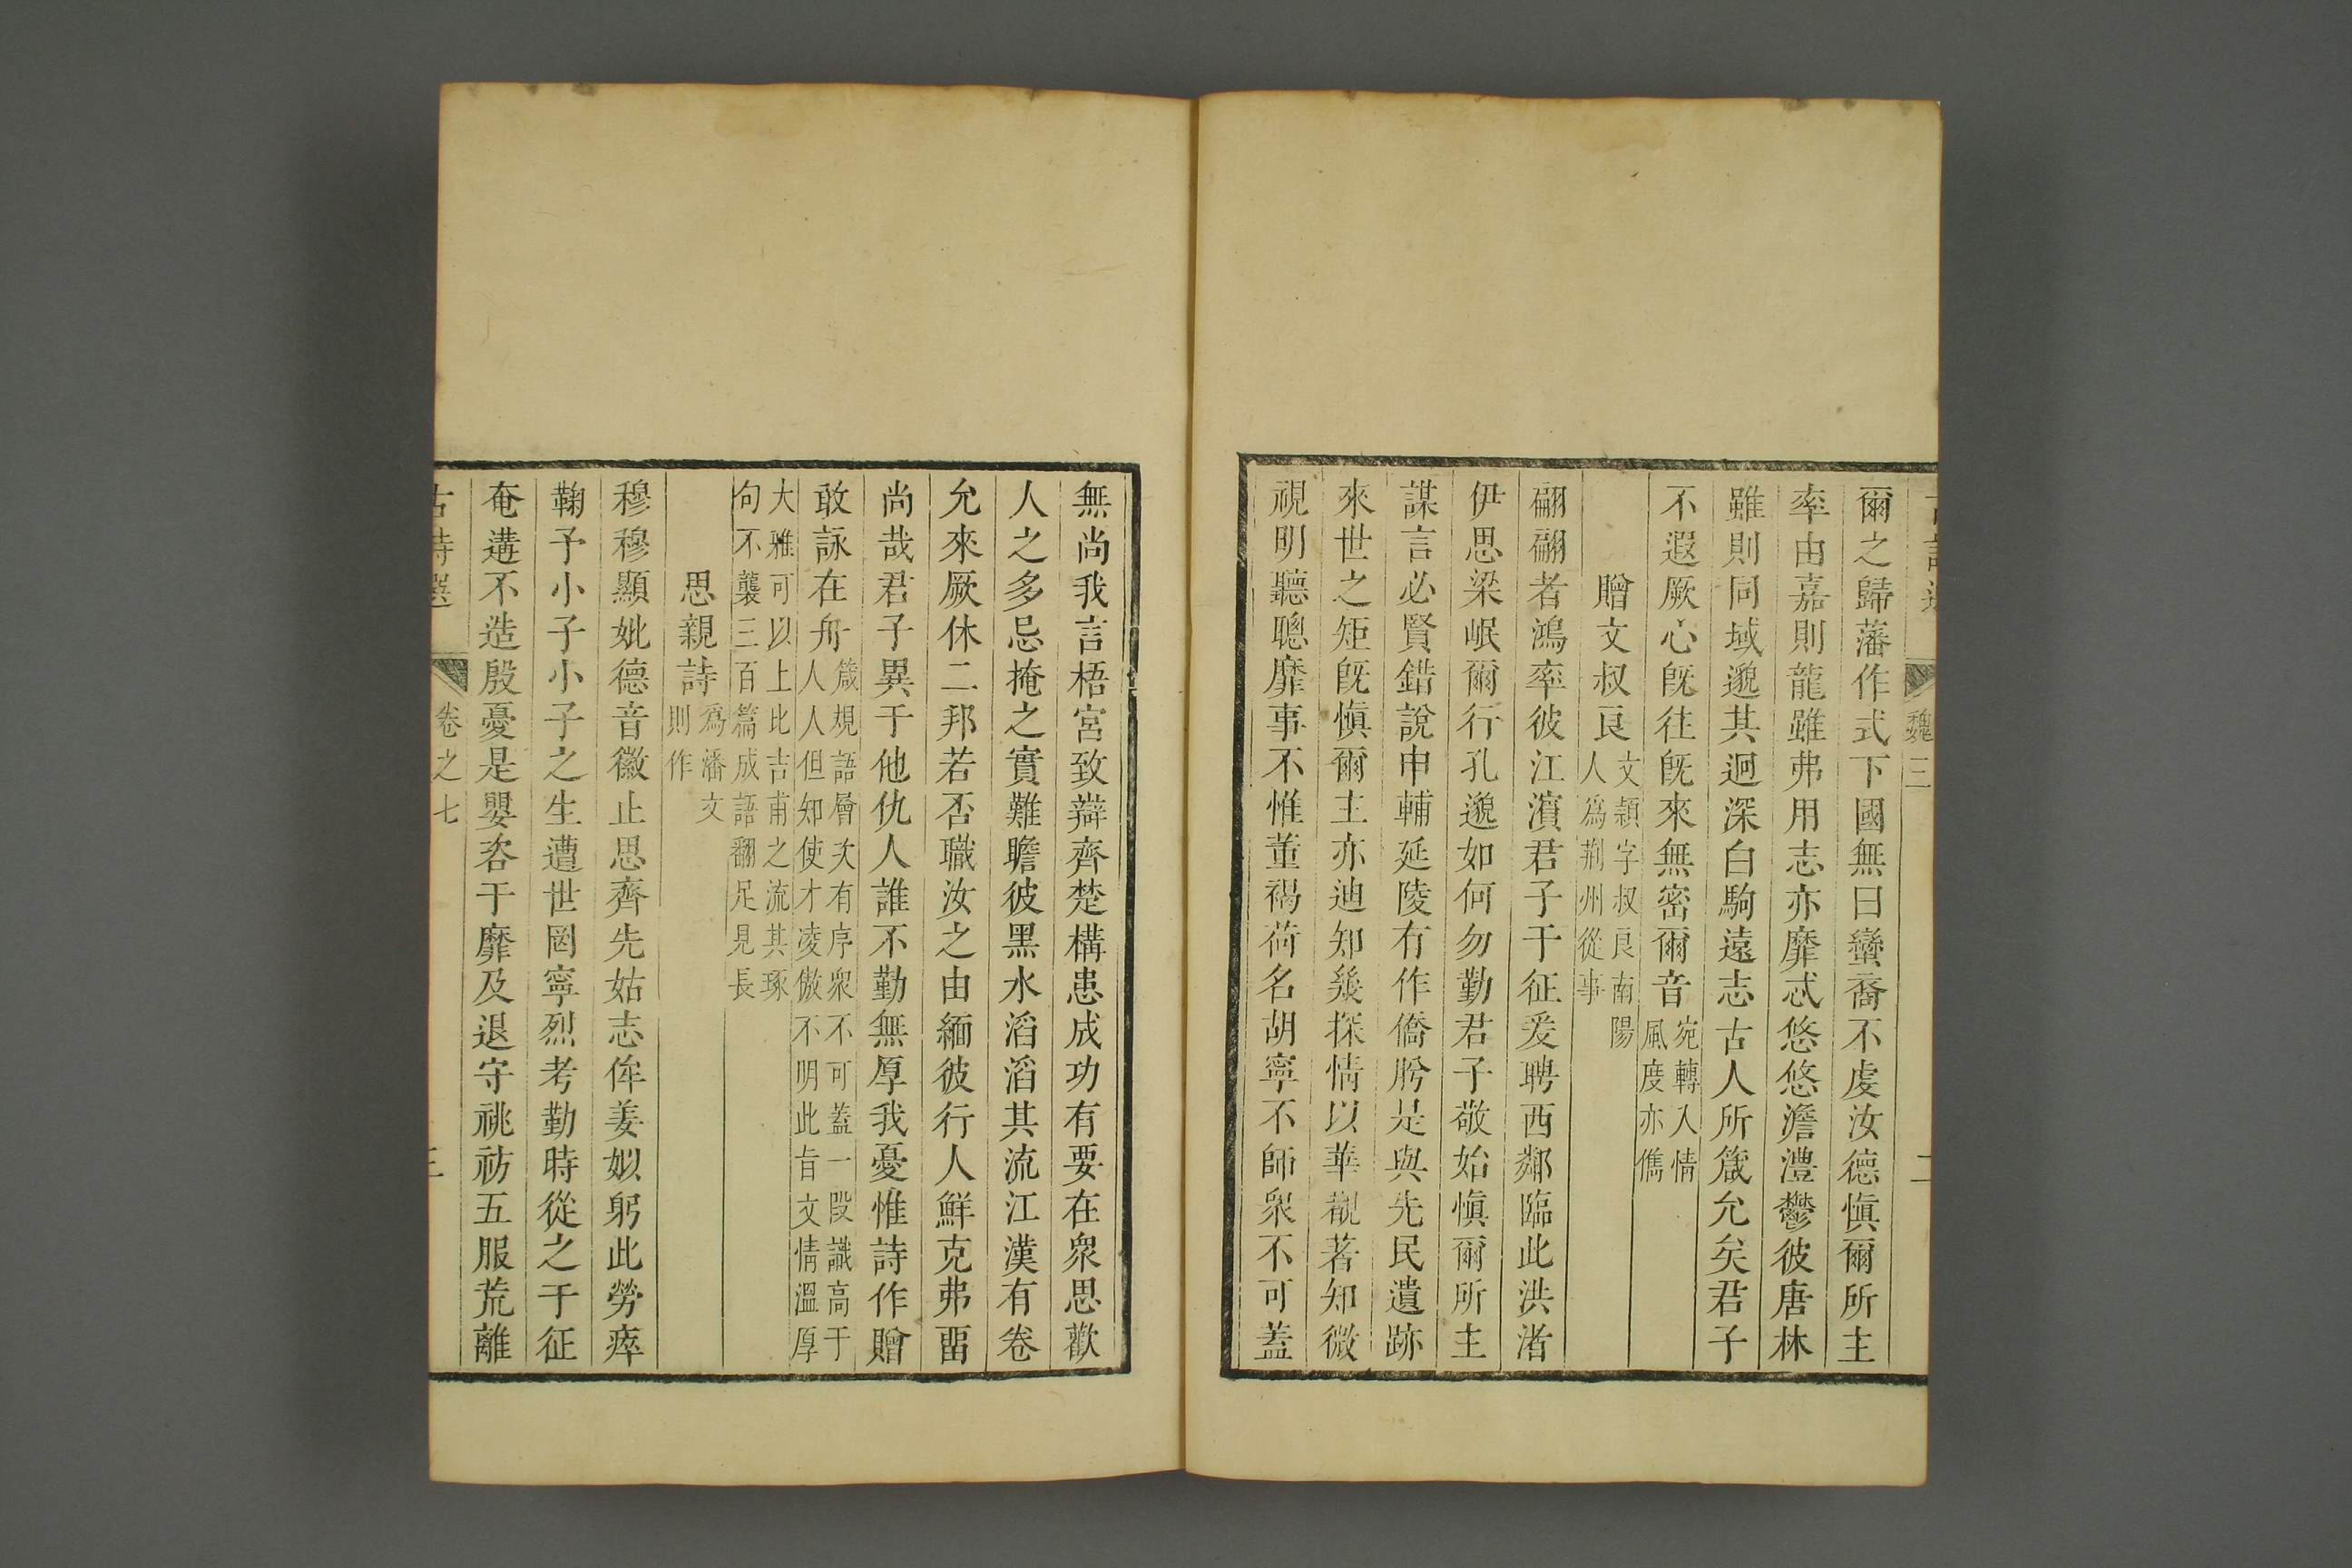 魏三
二
爾之歸藩作式下國無曰蠻裔不虔汝德愼爾所主
率由嘉則龍雖弗用志亦靡忒悠悠澹澧鬱彼唐林
雖則同域邈其迥深白駒遠志古人所箴允矣君子
不遐厥心旣往旣來無密爾音宛轉入情
風度亦儁
贈文叔良文潁字叔良南陽
人爲荆州從事
翩翩者鴻率彼江濱君子于征爰聘西鄰臨此洪渚
伊思梁岷爾行孔邈如何勿勤君子敬始愼爾所主
謀言必賢錯說申輔延陵有作僑肹是與先民遺跡
來世之矩旣愼爾主亦迪知幾探情以華覩著知微
視明聽聰靡事不惟董褐荷名胡寧不師衆不可蓋
無尚我言梧宮致辯齊楚構患成功有要在衆思歡
人之多忌掩之實難瞻彼黑水滔滔其流江漢有卷
允來厥休二邦若否職汝之由緬彼行人鮮克弗畱
尚哉君子異于他仇人誰不勤無厚我憂惟詩作贈
敢詠在舟箴規語層次有序衆不可蓋一段識高于
人人但知使才凌傲不明此旨文情溫厚
大雅可以上比吉甫之流其琢
句不襲三百篇成語翻足見長
思親詩爲潘文
則作
穆穆顯妣德音徽止思齊先姑志侔姜姒躬此勞瘁
鞠予小子小子之生遭世罔寧烈考勤時從之于征
奄遘不造殷憂是嬰咨于靡及退守祧祊五服荒離
古詩選
卷之七
三